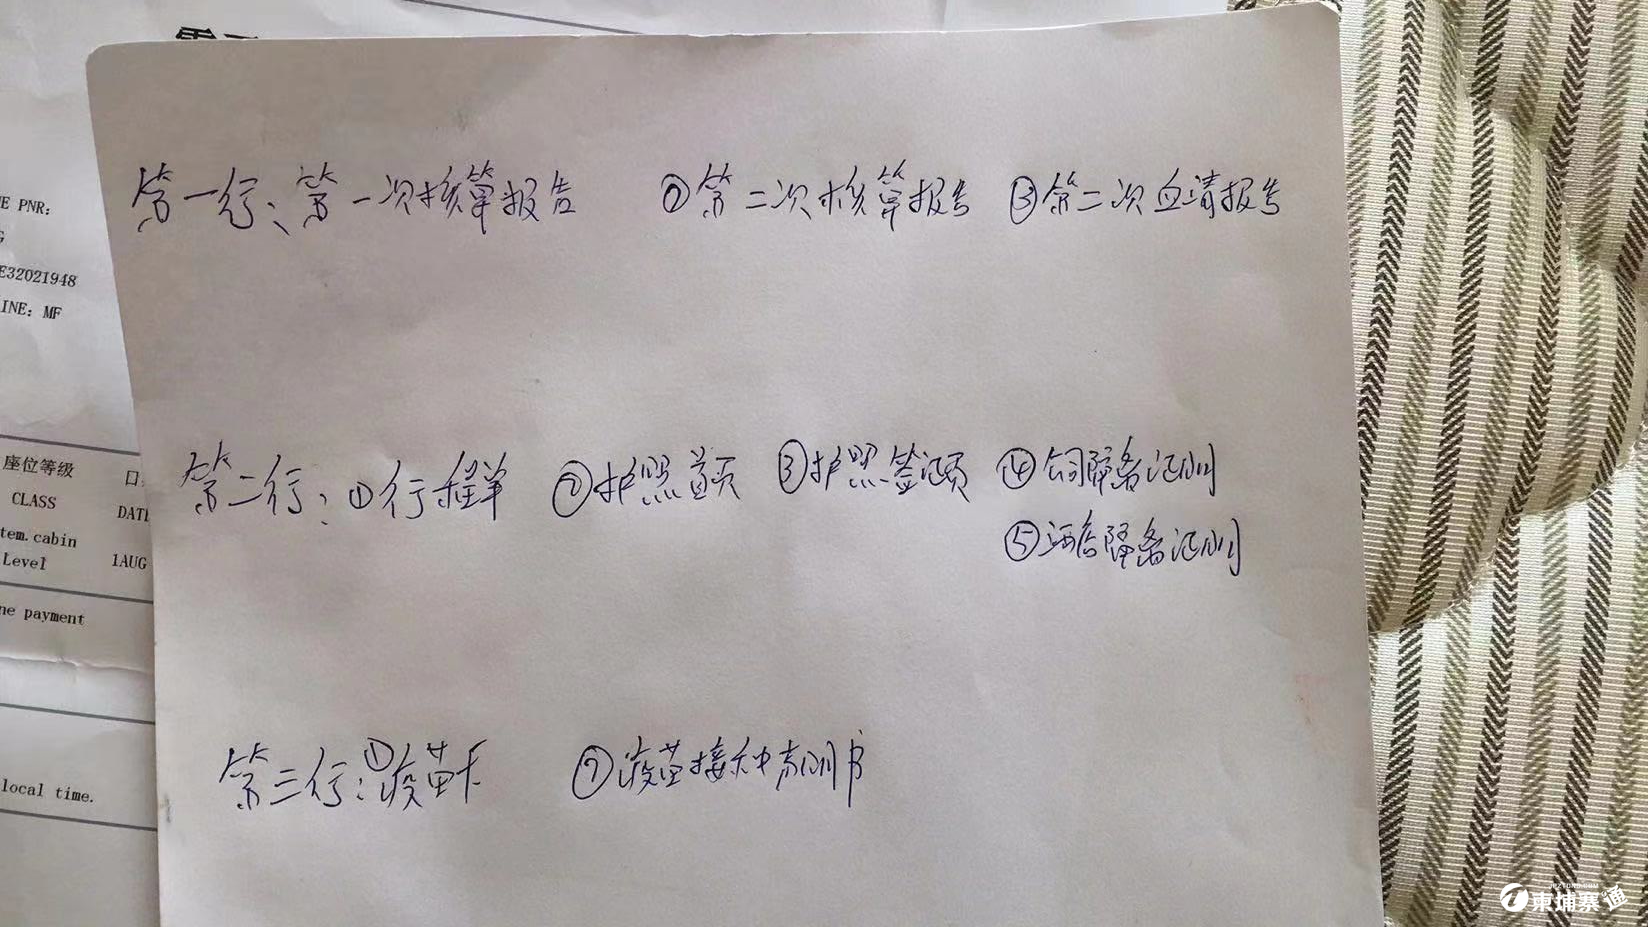 E PNR:
E32021948
INE: MF
座位等级
CLASS
DATE
tem.cabin
Level
1AUG
ne payment
local time.
第一行：第一次核算报告 ②第二次核算报告 ③第二次血清报告
第二行：①行程单 ②护照首页 ③护照签证页 ④公司隔离证明
⑤酒店隔离证明
第三行：①疫苗卡 ②疫苗接种声明书
柬埔寨通